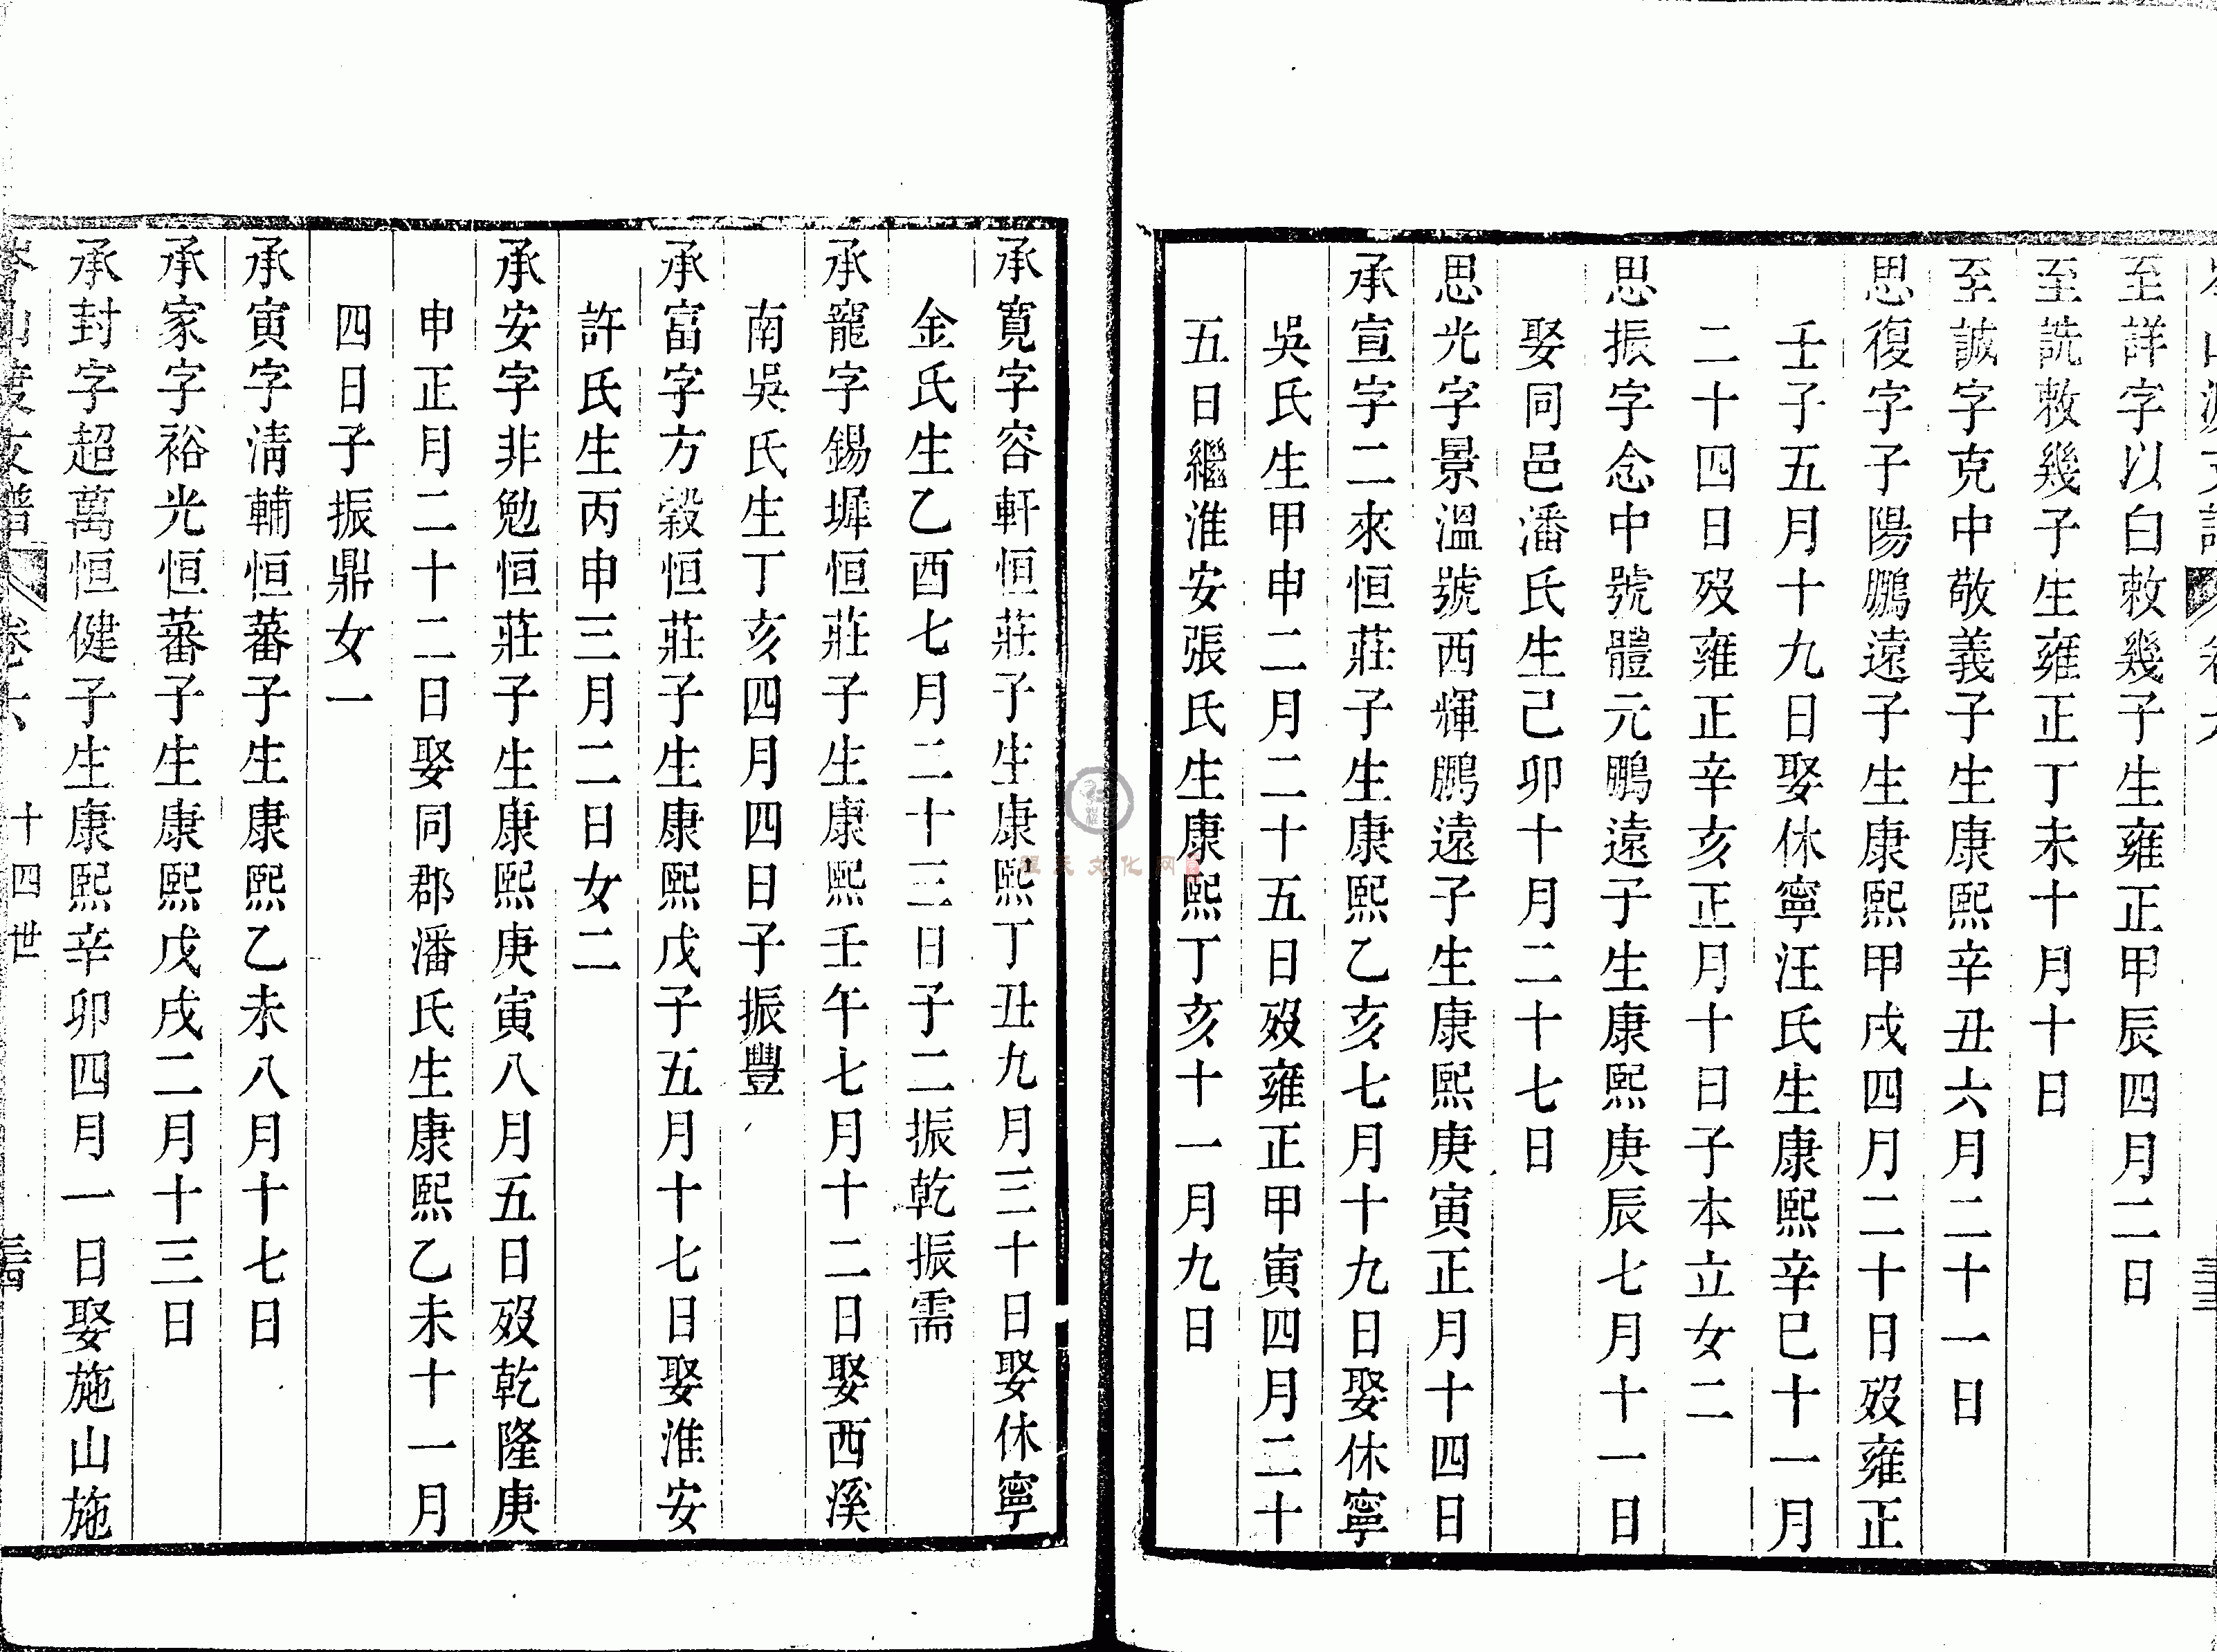 至詳字以白敕幾子生雍正甲辰四月二日
至詵敕幾子生雍正丁未十月十日
至誠字克中敬義子生康熙辛丑六月二十一日
思復字子陽鵬遠子生康熙甲戌四月二十日歿雍正
壬子五月十九日娶休寧汪氏生康熙辛巳十一月
二十四日歿雍正辛亥正月十日子本立女二
思振字念中號體元鵬遠子生康熙庚辰七月十一日
娶同邑潘氏生己卯十月二十七日
思光字景溫號西輝鵬遠子生康熙庚寅正月十四日
承宣字二來恒莊子生康熙乙亥七月十九日娶休寧
吳氏生甲申二月二十五日歿雍正甲寅四月二十
五日繼淮安張氏生康熙丁亥十一月九日
承寬字容軒恒莊子生康熙丁丑九月三十日娶休寧
金氏生乙酉七月二十三日子二振乾振需
承龍字錫墀恒莊子生康熙壬午七月十二日娶西溪
南吳氏生丁亥四月四日子振豐
承富字方穀恒莊子生康熙戊子五月十七日娶淮安
許氏生丙申三月二日女二
承安字非勉恒莊子生康熙庚寅八月五日歿乾隆庚
申正月二十二日娶同郡潘氏生康熙乙未十一月
四日子振鼎女一
承寅字清輔恒蕃子生康熙乙未八月十七日
承家字裕光恒蕃子生康熙戊戌二月十三日
承封字超萬恒健子生康熙辛卯四月一日娶施山施
十四世